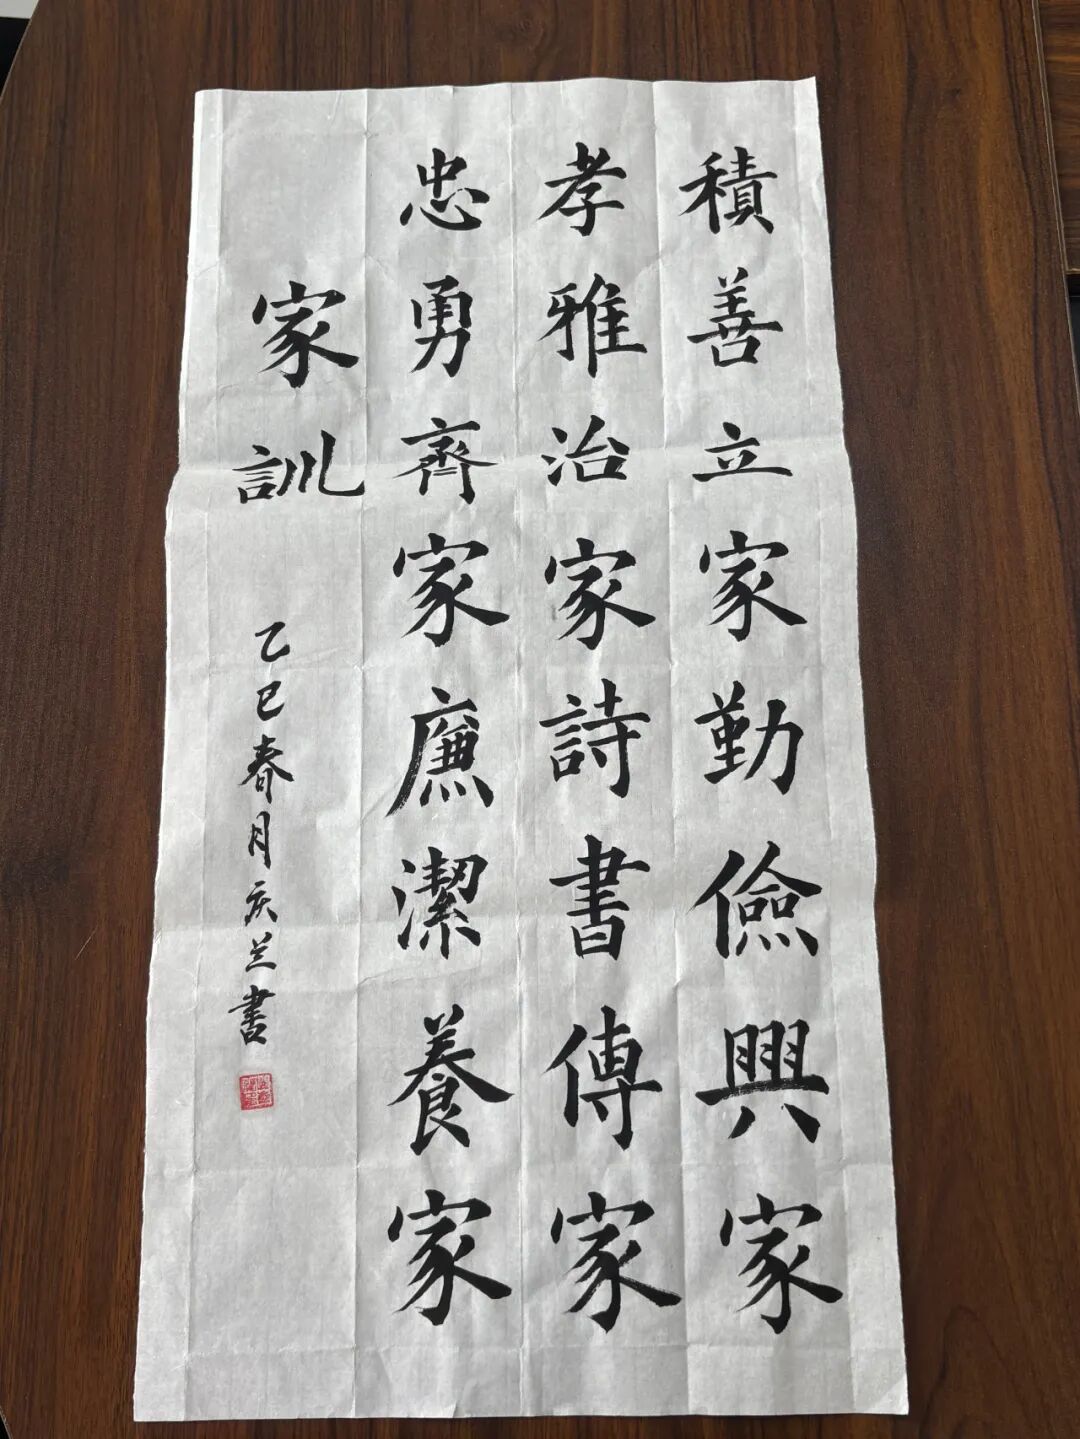 積善立家勤儉興家
孝雅治家詩書傳家
忠勇齊家廉潔養家
家訓
乙巳春月庆兰書